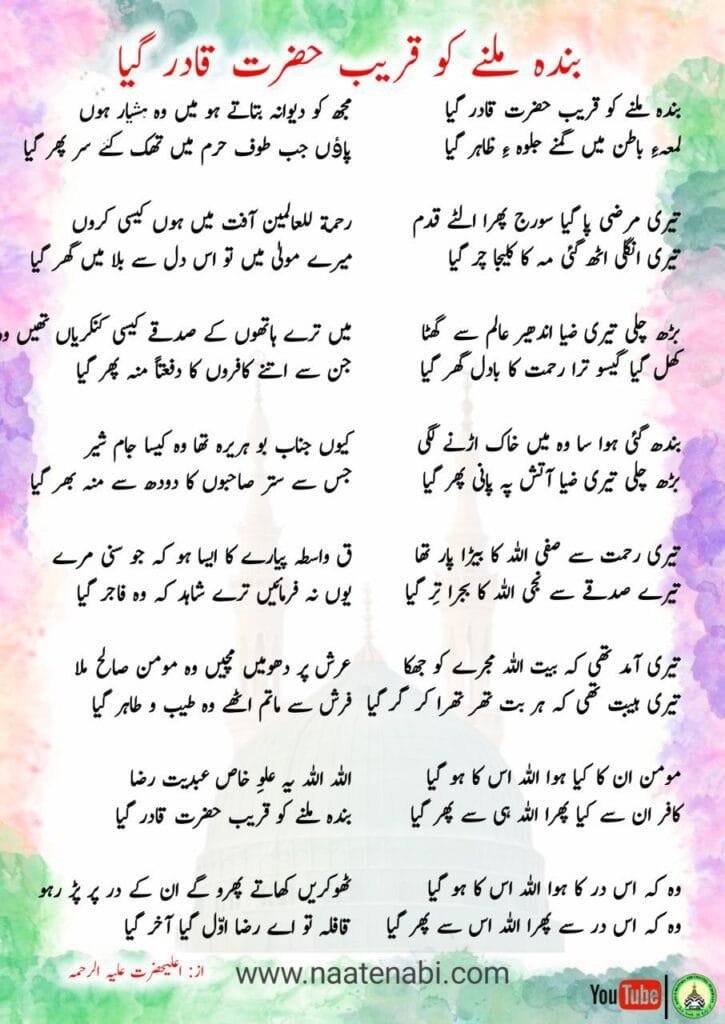 بندہ ملنے کو قریب حضرت قادر گیا
بندہ ملنے کو قریب حضرت قادر گیا
لمعہءِ باطن میں گمنے جلوہ ءِ ظاہر گیا
تیری مرضی پا گیا سورج پھرا الٹے قدم
تیری انگلی اٹھ گئی مہ کا کلیجا چر گیا
بڑھ چلی تیری ضیا اندھیر عالم سے گھٹا
کھل گیا گیسو ترا رحمت کا بادل گھر گیا
بندھ گئی ہوا سا وہ میں خاک اڑنے لگی
بڑھ چلی تیری ضیا آتش پہ پانی پھر گیا
تیری رحمت سے صفی اللہ کا بیڑا پار تھا
تیرے صدقے سے نجی اللہ کا بجرا تِر گیا
تیری آمد تھی کہ بیت اللہ مجرے کو جھکا
تیری ہیبت تھی کہ ہر بت تھر تھرا کر گر گیا
مومن ان کا کیا ہوا اللہ اس کا ہو گیا
کافر ان سے کیا پھرا اللہ ہی سے پھر گیا
وہ کہ اس در کا ہوا اللہ اس کا ہو گیا
وہ کہ اس در سے پھرا اللہ اس سے پھر گیا
مجھ کو دیوانہ بتاتے ہو میں وہ ہشیار ہوں
پاؤں جب طوف حرم میں تھک گئے سر پھر گیا
رحمۃ للعالمین آفت میں ہوں کیسی کروں
میرے مولیٰ میں تو اس دل سے بلا میں گھر گیا
میں ترے ہاتھوں کے صدقے کیسی کنکریاں تھیں وہ
جن سے اتنے کافروں کا دفعتاً منہ پھر گیا
کیوں جناب بو ہریرہ تھا وہ کیسا جام شیر
جس سے ستر صاحبوں کا دودھ سے منہ بھر گیا
ق واسطہ پیارے کا ایسا ہو کہ جو سنی مرے
یوں نہ فرمائیں ترے شاہد کہ وہ فاجر گیا
عرش پر دھومیں مچیں وہ مومن صالح ملا
فرش سے ماتم اٹھے وہ طیب و طاہر گیا
اللہ اللہ یہ علوِ خاص عبدیت رضا
بندہ ملنے کو قریب حضرت قادر گیا
ٹھوکریں کھاتے پھرو گے ان کے در پر پڑ رہو
قافلہ تو اے رضا اوّل گیا آخر گیا
از: اعلیحضرت علیہ الرحمہ
www.naatenabi.com
YouTube